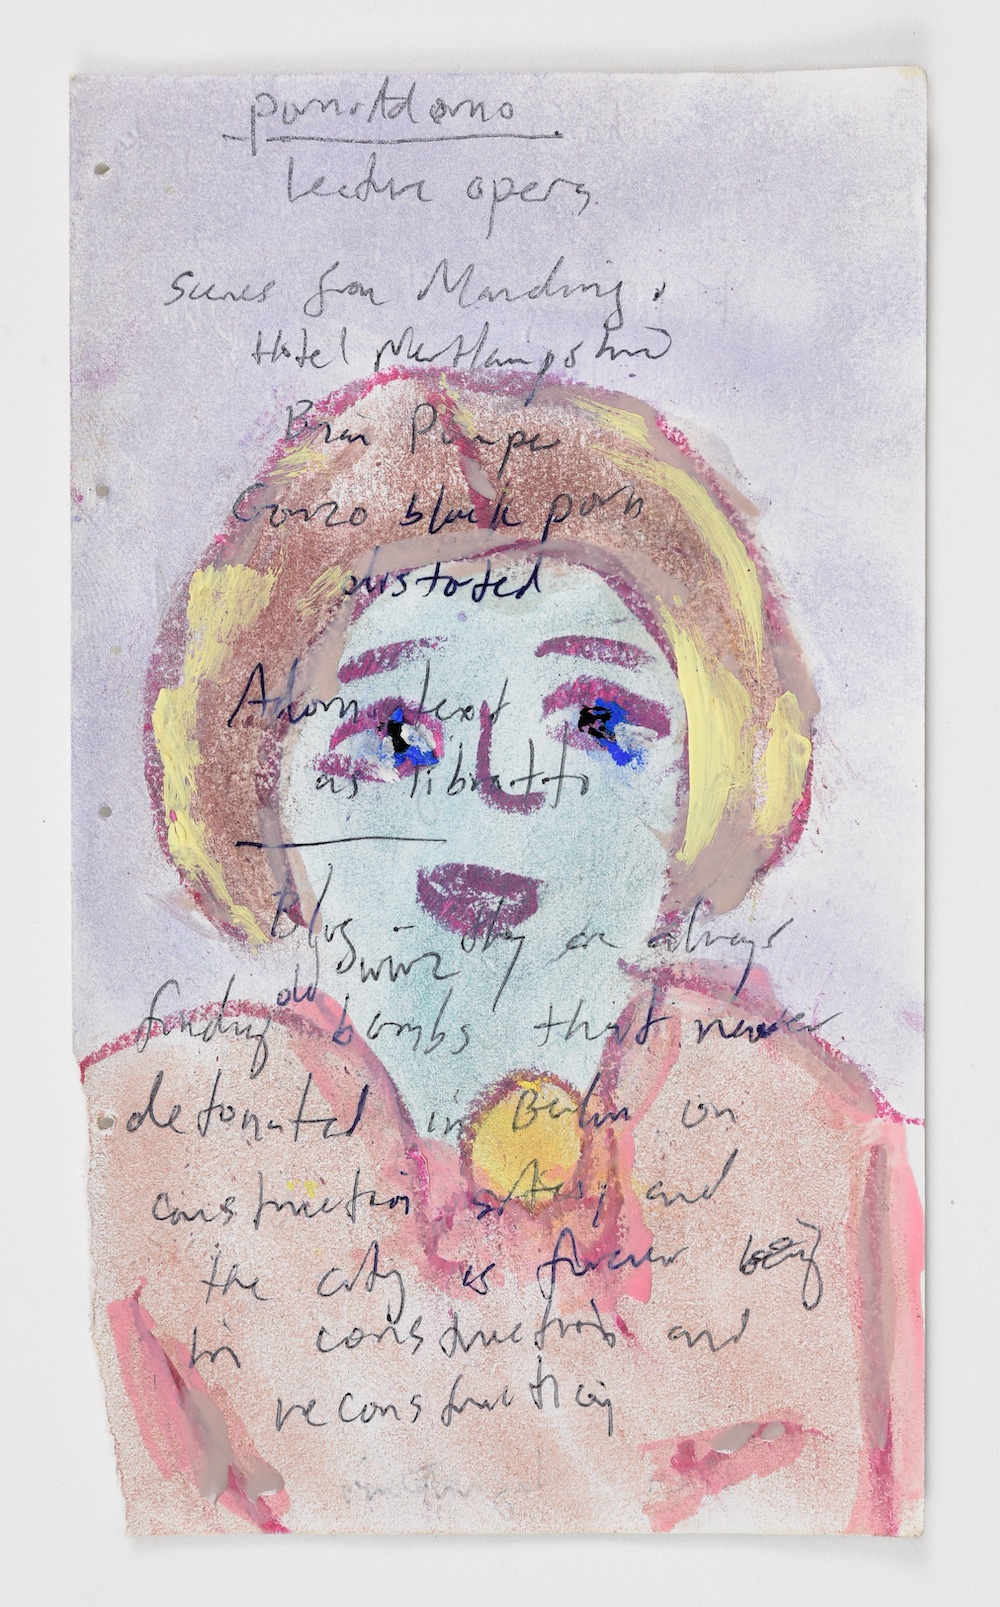 lecture opera
scenes from Mandingo,
Hotel
Brian Pumper
Gonzo black porn
distorted
Adorno text
as libretto
Blog - they are always
finding old WW2 bombs that never
detonated in Berlin on
construction sites, and
the city is forever being
in construction and
reconstruction